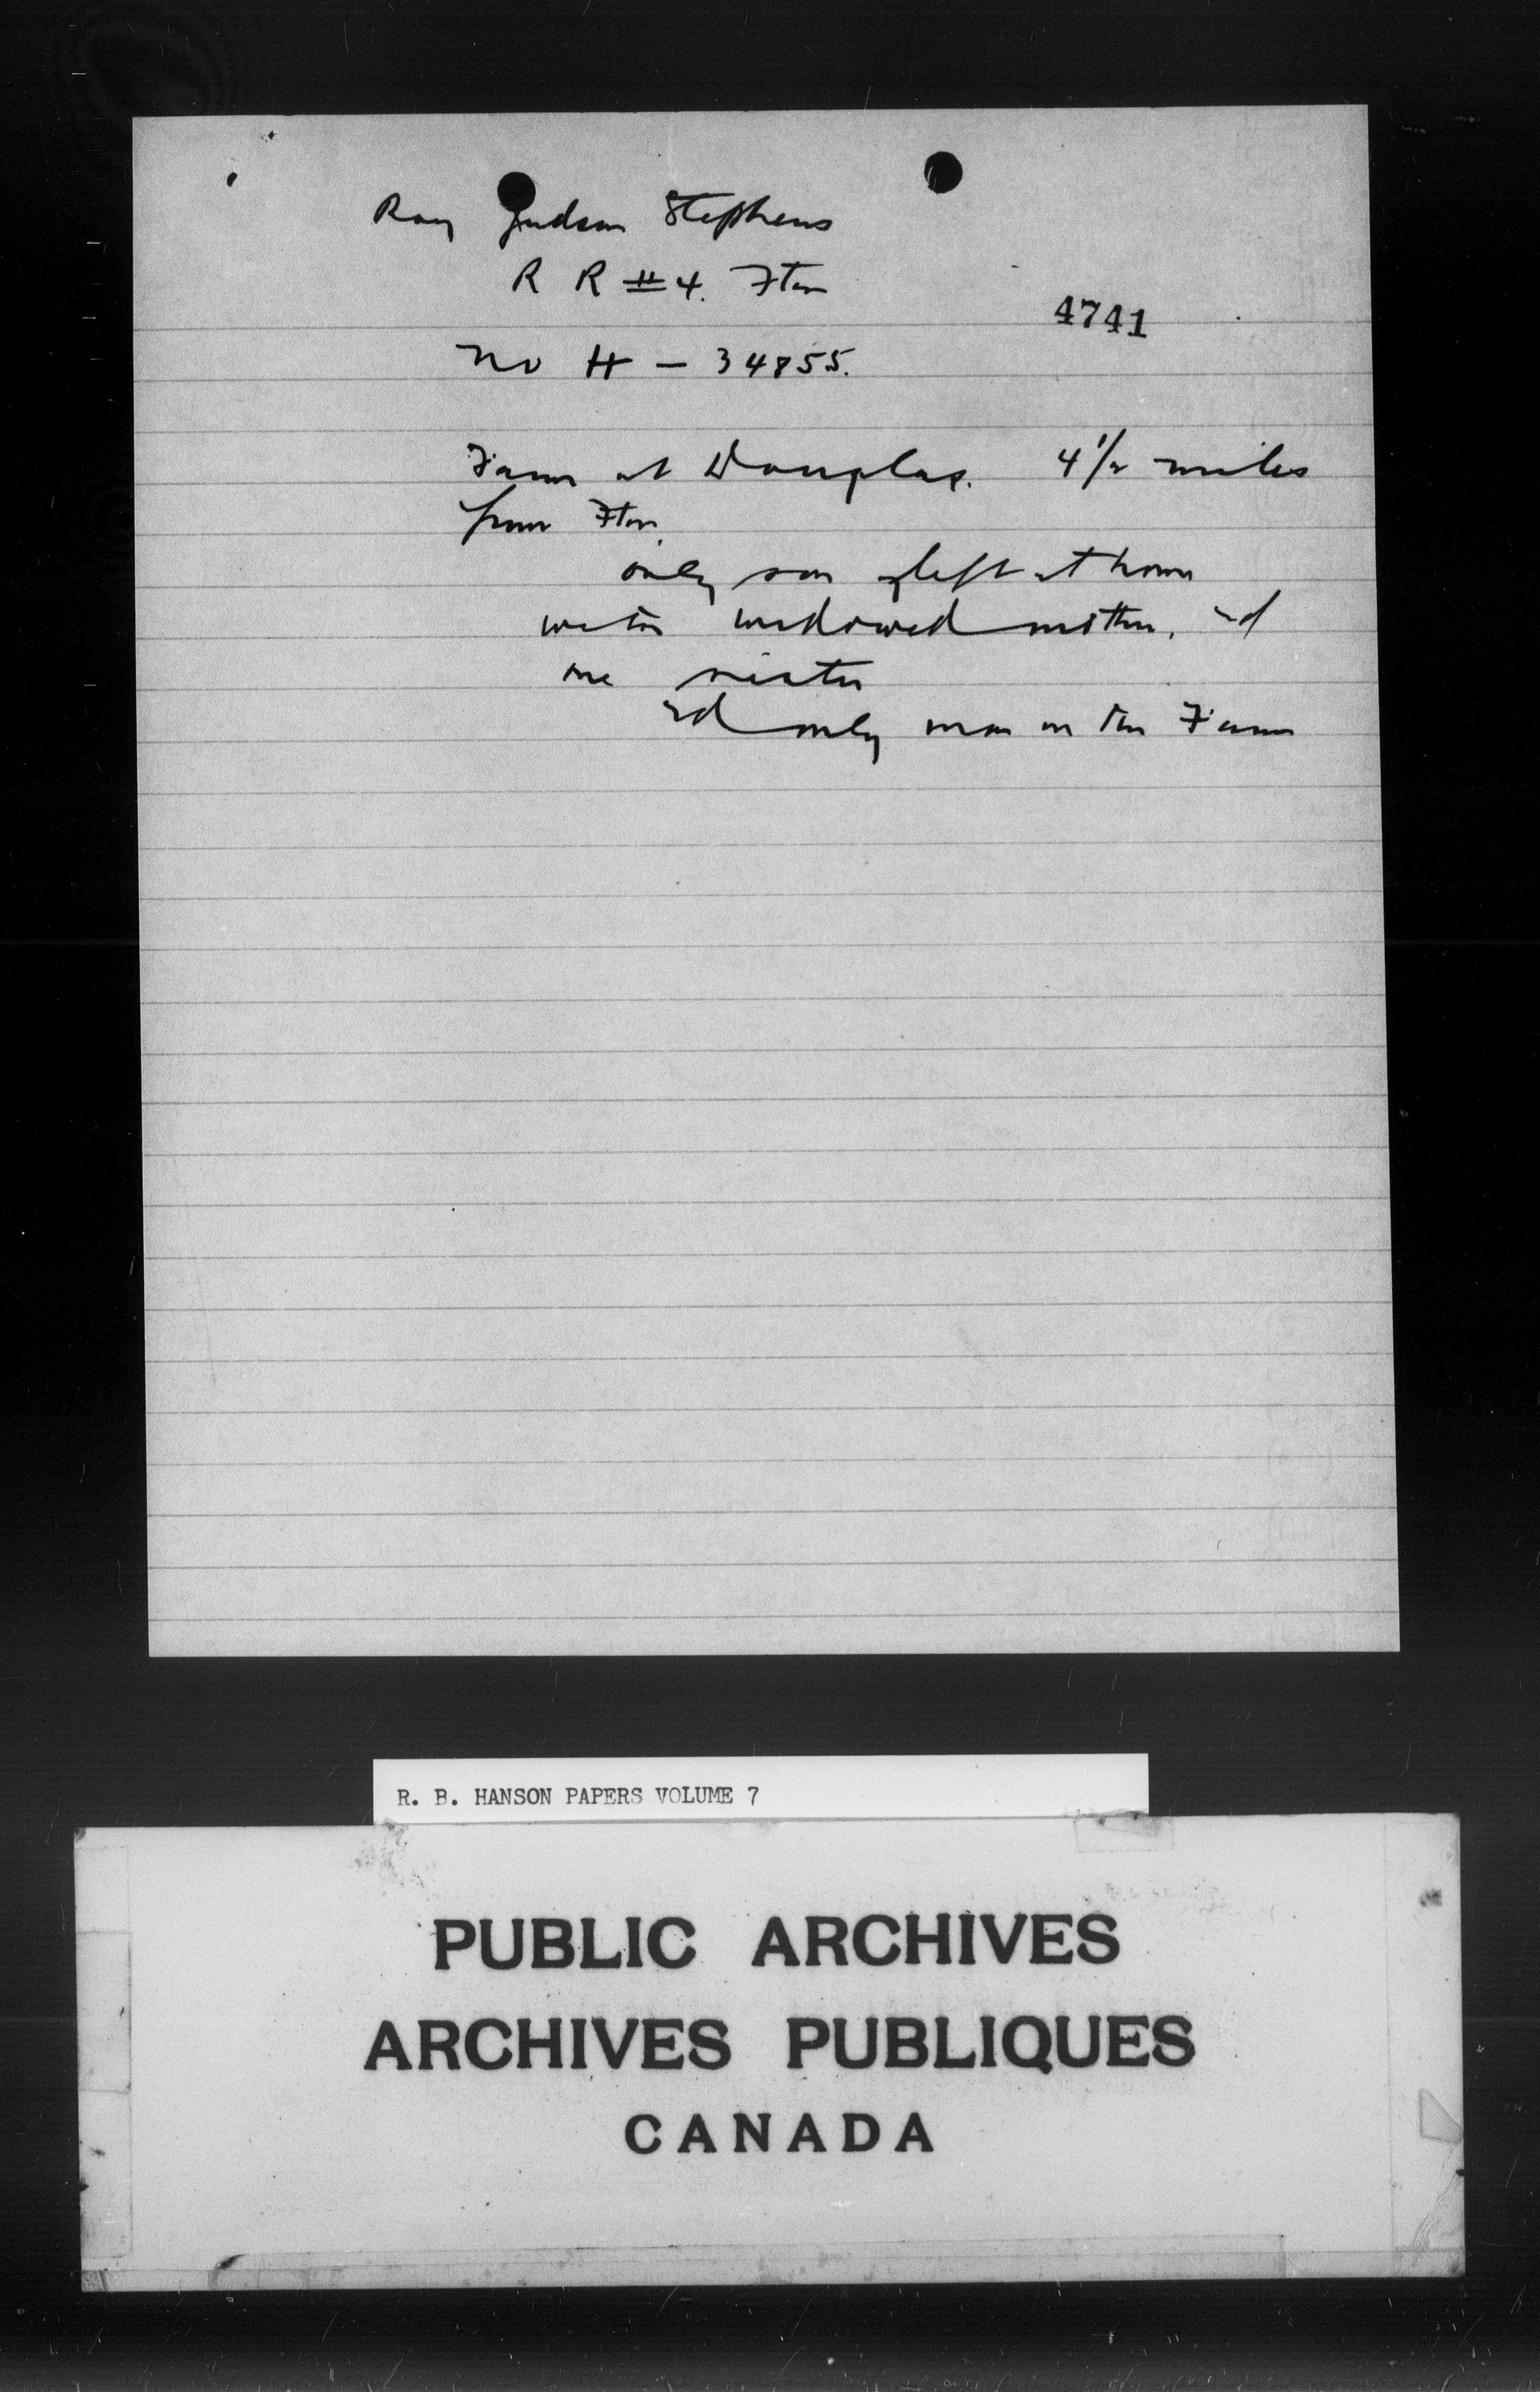 Ray Judson Stephens
R R #4. Fton
4741
No H - 34855.
Farm at Douglas. 4 1/2 miles
from Fton
only son left at home
with widowed mother, and
one sister
and only man on the Farm
R. B. HANSON PAPERS VOLUME 7
PUBLIC ARCHIVES
ARCHIVES PUBLIQUES
CANADA